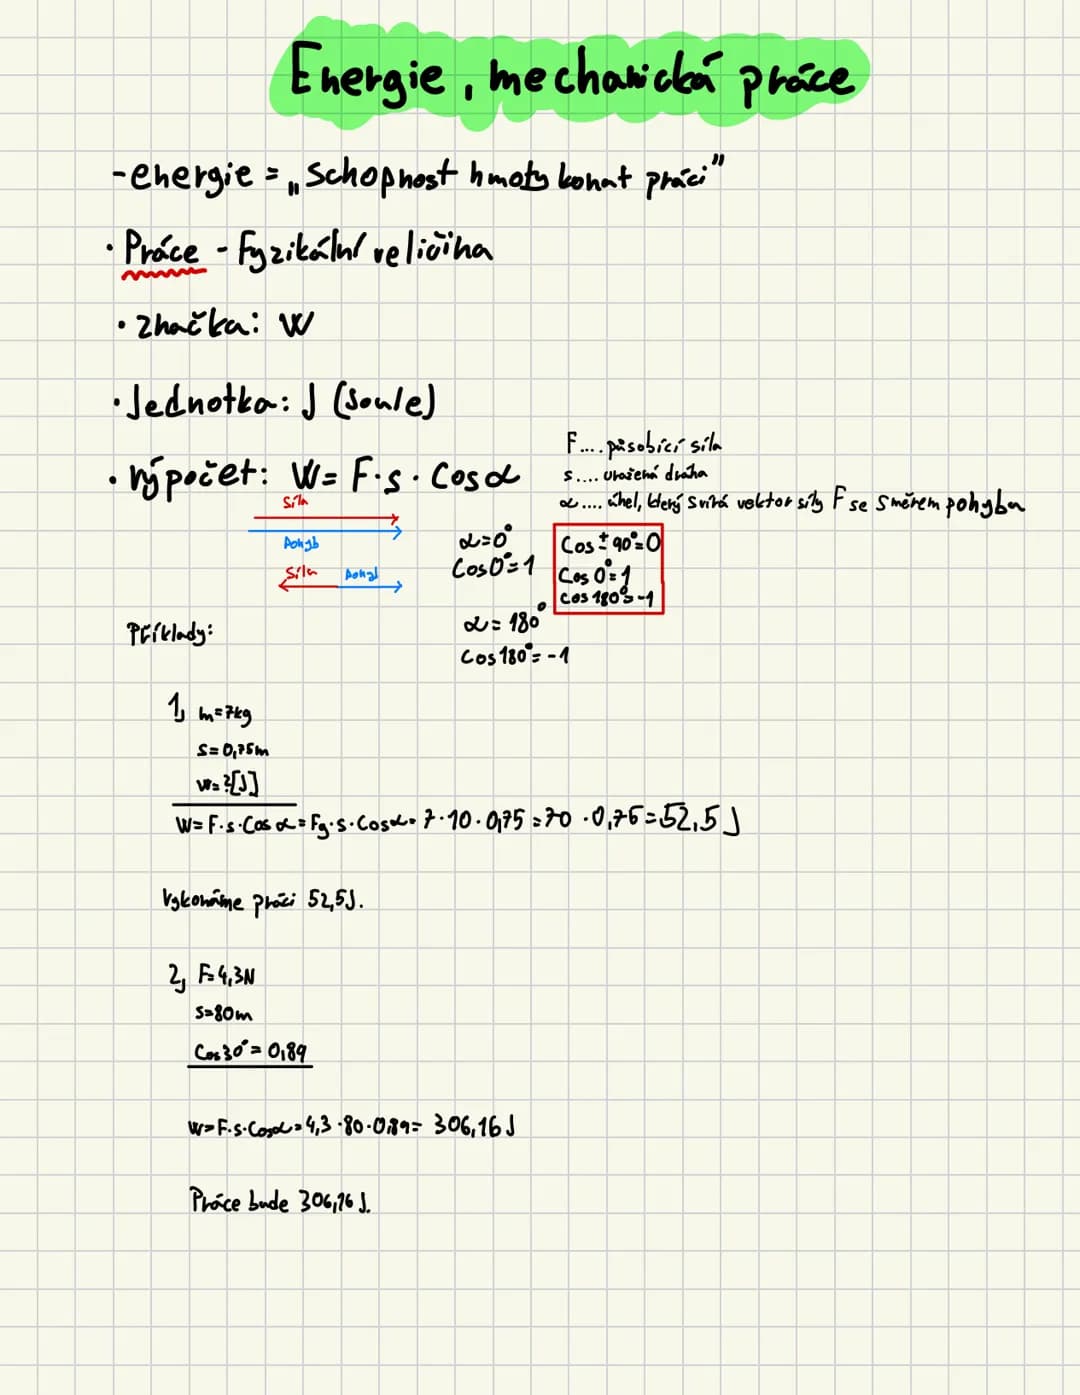 Energie, mechanická práce
-energie = „schopnost hmoty konat práci"
· Práce - fyzikální veličina
· značka: W
· Jednotka: J (Joule)
F.... působící síla
s.... uražená dráha
· výpočet: W= F·s·Cosα
α.... úhel, který svírá vektor síly F se směrem pohybu
síla
Pohyb
α=0°
Cos0°=1
Cos ± 90°=0
Cos 0°=1
Cos 180°=-1
síla Pohyb
α= 180°
Cos 180°= -1
Příklady:
1, m=7kg
s=0,75m
W=?[J]
W= F·s·Cos α= Fg·s·Cosα= 7·10·0,75 =70 ·0,75=52,5 J
Vykonáme práci 52,5J.
2, F=4,3N
s=80m
Cos30°= 0,89
W=F·s·Cosα=4,3·80·0,89= 306,16 J
Práce bude 306,16 J.